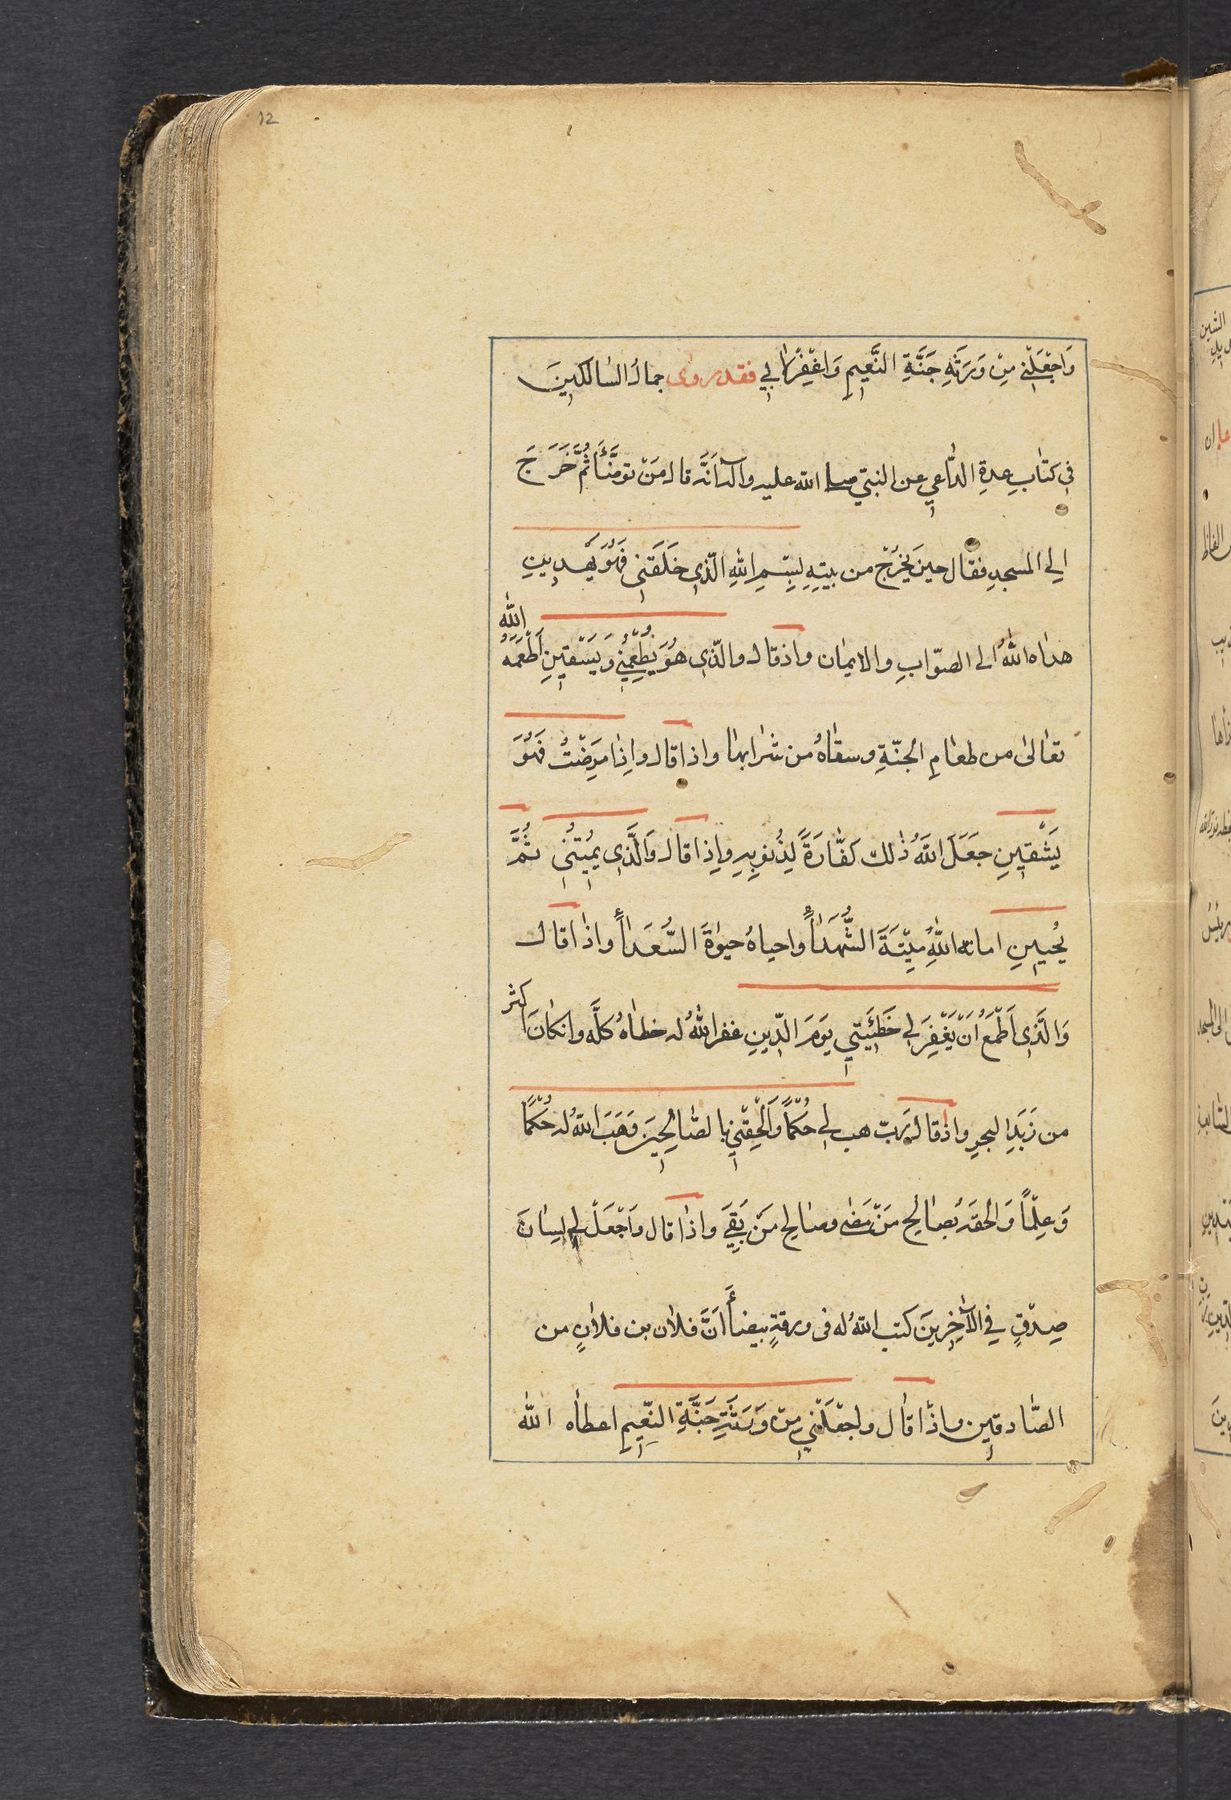 12
وَاجْعَلْنِي مِنْ وَرَثَةِ جَنَّةِ النَّعِيمِ وَاغْفِرْ لِأَبِي فقد روى جمال السالكين
في كتابِ عدةِ الدّاعي عن النبيّ صلى الله عليه وآله أنَّه قال مَنْ توضَّأَ ثُمَّ خَرَجَ
الى المسجدِ فقال حينَ يخرُجُ من بيتِهِ بِسْمِ اللهِ الَّذي خَلَقَني فَهُوَ يَهْدِينِ
هداه اللهُ الى الصّوابِ والايمان واذ قال والّذي هُوَ يُطْعِمُني وَيَسْقينِ أَطْعَمَهُ الله
تعالى من طعامِ الجنّةِ وسقاهُ من شرابها واذا قال وإذا مَرِضْتُ فَهُوَ
يَشْفينِ جَعَلَ اللهُ ذٰلك كفَّارَةً لِذُنوبِهِ واذا قال وَالَّذي يُميتُني ثُمَّ
يُحيينِ اماته اللهُ مِيتَةَ الشُّهَداءِ واحياهُ حيوٰةَ السُّعَداءِ واذا قال
وَالَّذي اَطْمَعُ اَنْ يَغْفِرَ لي خَطيئَتي يَومَ الدّينِ غفر اللهُ له خطاهُ كلَّه وانكانَ اكثر
من زَبَدِ البحرِ واذا قال رَبّ هب لي حُكْماً وَأَلْحِقْني بالصّالحينَ وَهَبَ اللهُ له حُكْمًا
وَعِلْماً وَالحقَهُ بصالحِ مَنْ مَضى وصالحِ مَنْ بَقِيَ واذا قال وَاجْعَلْ لي لِسانَ
صِدْقٍ في الآخِرينَ كتب اللهُ له في ورقةٍ بيضاءَ اَنَّ فلان بن فلانٍ من
الصّادقين واذا قال واجعَلْني مِنْ وَرَثَةِ جَنَّةِ النّعيمِ اعطاه الله